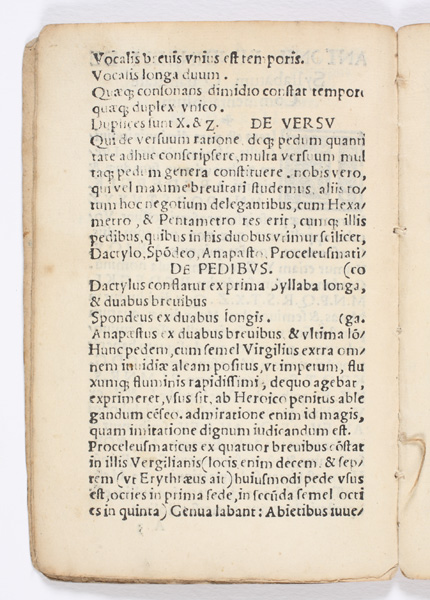 Vocalis brevis vnius est temporis.
Vocalis longa duum.
Quæq; consonans dimidio constat tempore
quæq; duplex vnico.
Duplices sunt X. & Z. DE VERSV
Qui de versuum ratione, deq; pedum quanti
tate adhuc conscripsere, multa versuum mul
taq; pedum genera constituere. nobis vero,
qui vel maxime brevitati studemus, aliis to/
tum hoc negotium delegantibus, cum Hexa/
metro, & Pentametro res erit, cumq; illis
pedibus, quibus in his duobus vtimur scilicet,
Dactylo, Spõdeo, Anapæsto, Proceleusmati/
DE PEDIBVS. (co
Dactylus constatur ex prima Syllaba longa,
& duabus brevibus
Spondeus ex duabus longis. (ga.
Anapæstus ex duabus brevibus & vltima lõ/
Hunc pedem, cum semel Virgilius extra om/
nem invidiæ aleam positus, vt impetum, flu
xumq; fluminis rapidissimi, de quo agebar,
exprimeret, vsus sit, ab Heroico penitus able
gandum cẽseo. admiratione enim id magis,
quam imitatione dignum iudicandum est.
Proceleusmaticus ex quatuor brevibus cõstat
in illis Vergilianis (locis enim decem & sep/
tem (vt Erythræus ait) huiusmodi pede vsus
est, octies in prima sede, in secũda semel octi
es in quinta) Genua labant: Abietibus iuve/